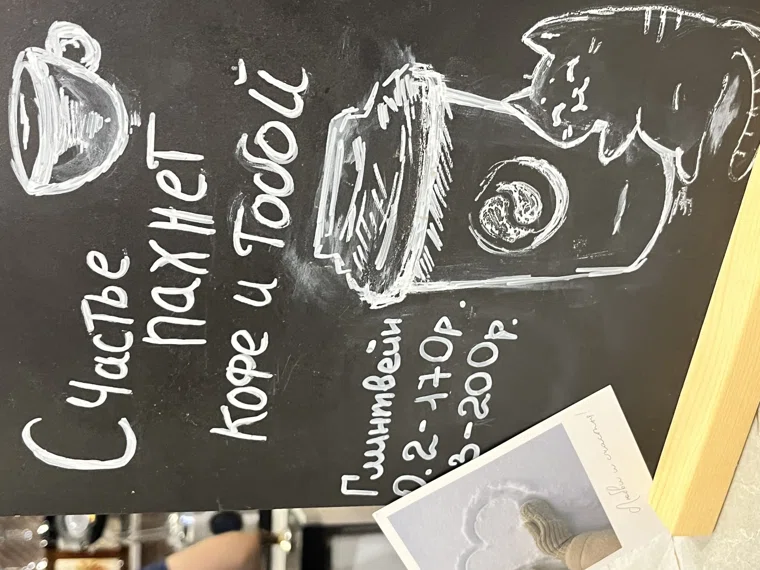 Счастье
пахнет
кофе и Тобой
Глинтвейн
0.2-170р.
3-200р.
Любви и счастья!